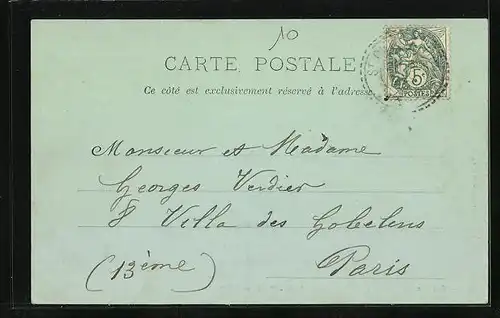 10
CARTE POSTALE
Ce côté est exclusivement réservé à l'adresse
5c
POSTES
Monsieur et Madame
Georges Verdier
8 Villa des Gobelins
Paris
(13ème)